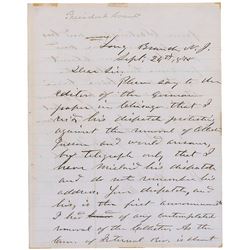 President Grant
Long Branch, N.J.
Sept. 28th 1875
Dear Sir:
Please say to the
editor of the German
paper in Chicago that I
rec'd his dispatch protesting
against the removal of
and would answer,
by telegraph only that I
have mislaid his dispatch
and do not remember his
address. Your dispatch, and
his, is the first announcement
I had of any contemplated
removal of the Collector. As the
Com. of Internal Rev. is absent